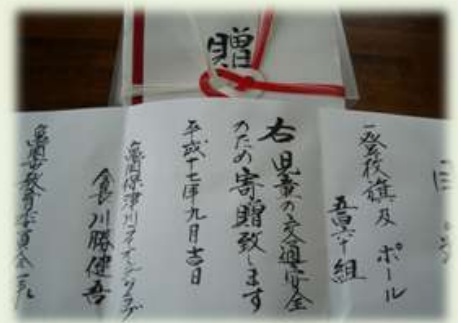 贈
一、登校旗及 ポール
組
右 児童の交通安全
のため寄贈致します
平成十七年九月吉日
亀岡保津川ライオンズクラブ
会長 川勝健吾
亀岡市教育委員会